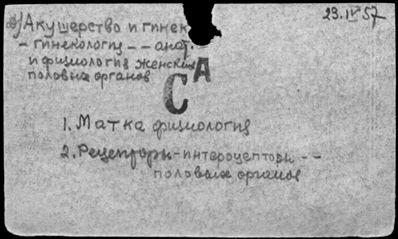 в) Акушерство и гинек
23.IV 57
- гинекология - - анат.
и физиология женских
половых органов
СА
1. Матка физиология
2. Рецепторы-интероцепторы - -
половых органов